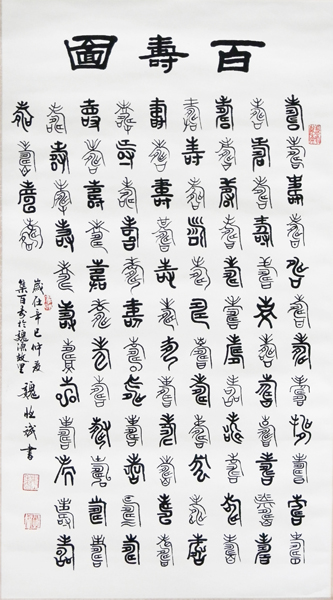 百壽圖
壽壽壽壽壽壽壽壽壽壽壽壽
壽壽壽壽壽壽壽壽壽壽壽壽
壽壽壽壽壽壽壽壽壽壽壽壽
壽壽壽壽壽壽壽壽壽壽壽壽
壽壽壽壽壽壽壽壽壽壽壽壽
壽壽壽壽壽壽壽壽壽壽壽壽
壽壽壽壽壽壽壽壽壽壽壽壽
壽壽壽壽壽壽壽壽壽壽壽壽
壽壽壽壽
歲在辛巳仲夏
集百壽於魏源故里
魏 書